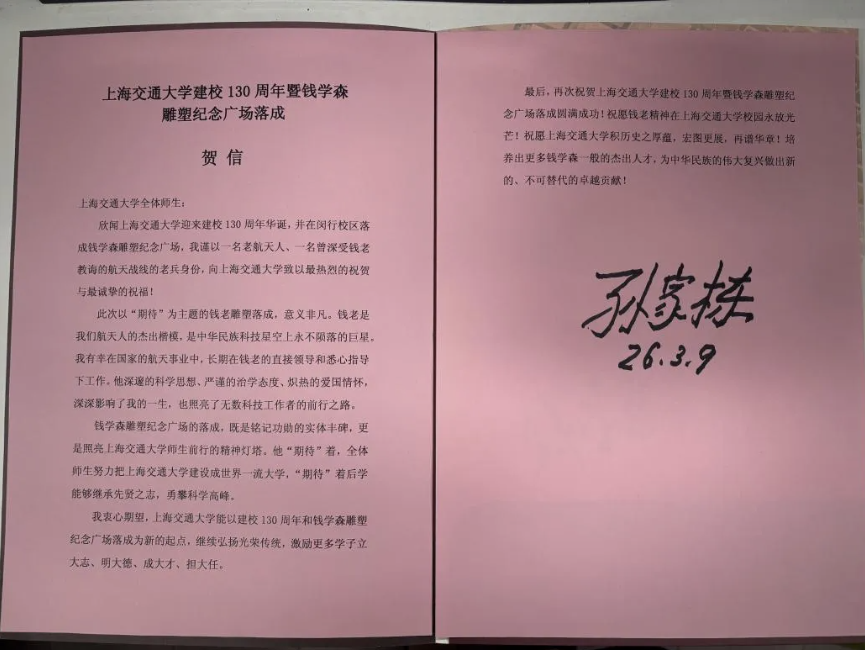 上海交通大学建校 130 周年暨钱学森
雕塑纪念广场落成
贺 信
上海交通大学全体师生：
欣闻上海交通大学迎来建校 130 周年华诞，并在闵行校区落
成钱学森雕塑纪念广场，我谨以一名老航天人、一名曾深受钱老
教诲的航天战线的老兵身份，向上海交通大学致以最热烈的祝贺
与最诚挚的祝福！
此次以“期待”为主题的钱老雕塑落成，意义非凡。钱老是
我们航天人的杰出楷模，是中华民族科技星空上永不陨落的巨星。
我有幸在国家的航天事业中，长期在钱老的直接领导和悉心指导
下工作。他深邃的科学思想、严谨的治学态度、炽热的爱国情怀，
深深影响了我的一生，也照亮了无数科技工作者的前行之路。
钱学森雕塑纪念广场的落成，既是铭记功勋的实体丰碑，更
是照亮上海交通大学师生前行的精神灯塔。他“期待”着，全体
师生努力把上海交通大学建设成世界一流大学，“期待”着后学
能够继承先贤之志，勇攀科学高峰。
我衷心期望，上海交通大学能以建校 130 周年和钱学森雕塑
纪念广场落成为新的起点，继续弘扬光荣传统，激励更多学子立
大志、明大德、成大才、担大任。
最后，再次祝贺上海交通大学建校 130 周年暨钱学森雕塑纪
念广场落成圆满成功！祝愿钱老精神在上海交通大学校园永放光
芒！祝愿上海交通大学积历史之厚蕴，宏图更展，再谱华章！培
养出更多钱学森一般的杰出人才，为中华民族的伟大复兴做出新
的、不可替代的卓越贡献！
孙家栋
26.3.9